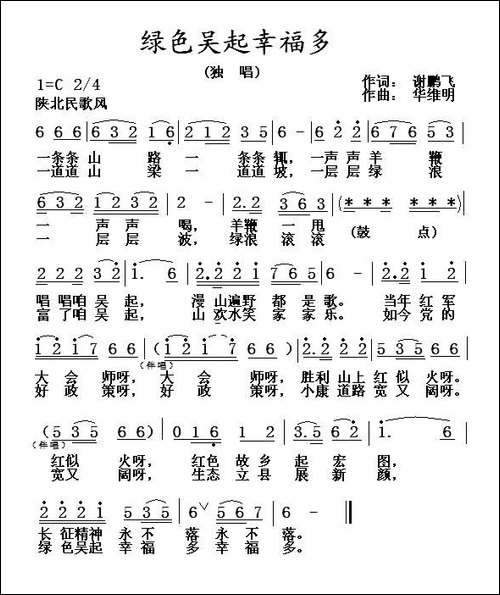 绿色吴起幸福多
(独 唱)
1=C 2/4
作词： 谢鹏飞
陕北民歌风
作曲： 华维明
6 6 6 | 6 3 2 1 6 | 2 1 2 3 5 | 6 - | 6 2 2 | 6 3 2 2
一条条 山 路 一 条条 辄， 一声 声 羊 鞭
一道道 山 梁 一 道道 坡， 一层 层 绿 浪
6 3 2 1 2 3 2 | 2 - | 2. 2 3 6 3 | (* * * * * *) |
一 声 声 喝， 羊鞭 一 甩 (鼓 点)
一 层 层 波， 绿浪 滚 滚
2. 2 2 2 3 2 | 1. 6 | 2. 2 2 1 7 6 5 | 6 - | 2. 2 1 2 |
唱 唱咱 吴 起， 漫 山遍 野 都 是 歌。 当年 红 军
富 了咱 吴 起， 山 欢水 笑 家 家 乐。 如今 党 的
1 2 1 7 6 6 | (1 2 1 7 6 6) | 2. 2 2 2 | 5 3 5 6 6 |
(伴唱)
大 会 师呀， 大 会 师呀， 胜利 山上 红 似 火呀。
好 政 策呀， 好 政 策呀， 小康 道路 宽 又 阔呀。
(5 3 5 6 6) | 0 1 6 1 2 | 3. 5 6 2 | 1. 6 |
(伴唱)
红似 火呀， 红色 故 乡 起 宏 图，
宽又 阔呀， 生态 立 县 展 新 颜，
2 2 2 1 2 | 5 3 5 | 6 ∨ 5 | 7 6 5 | 6 - ‖
长 征精神 永 不 落 永 不 落。
绿 色吴起 幸 福 多 幸 福 多。